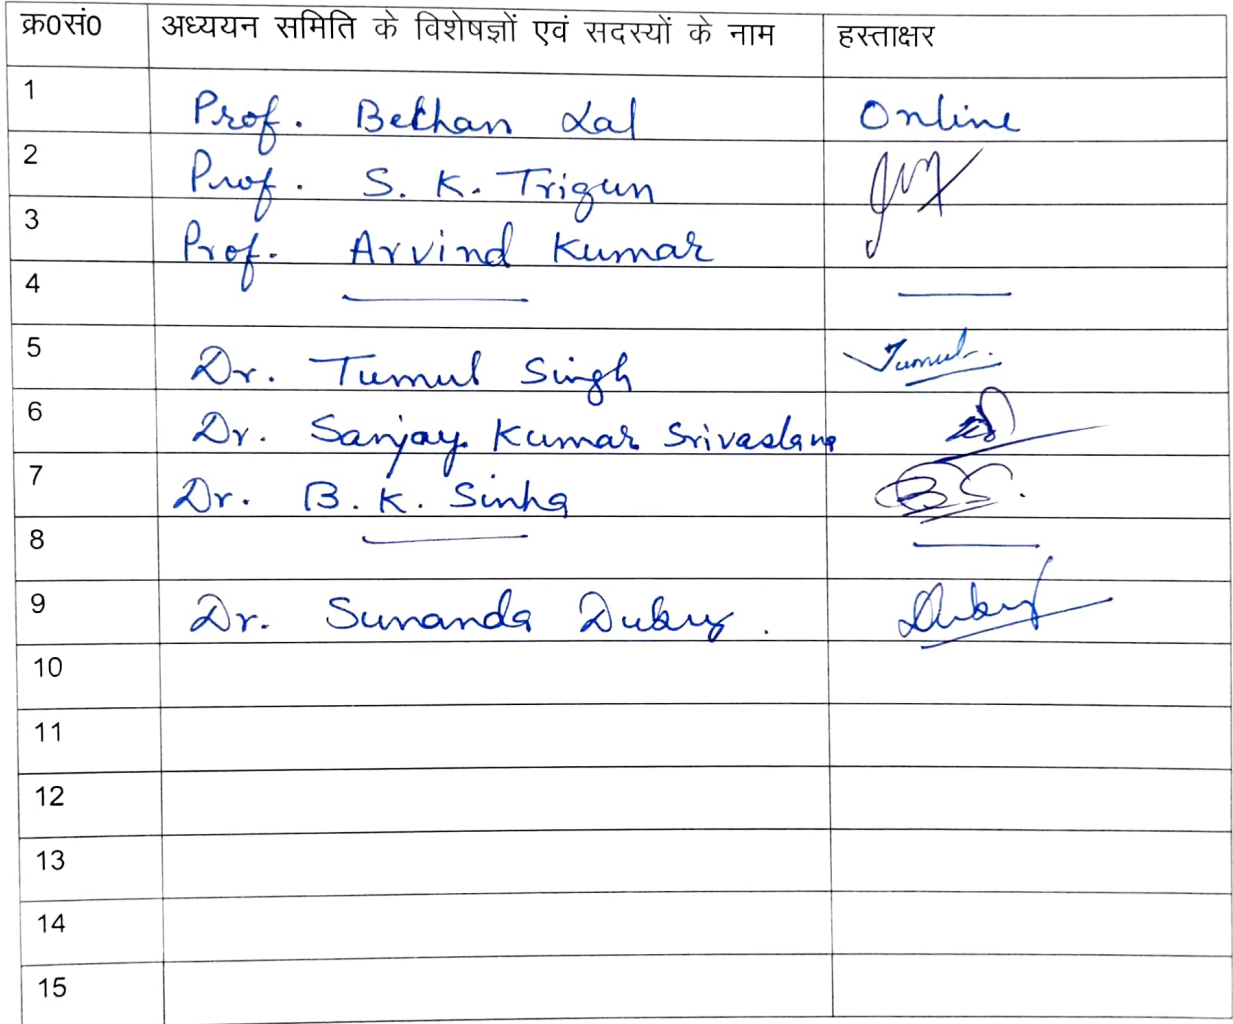 क्र0सं0 अध्ययन समिति के विशेषज्ञों एवं सदस्यों के नाम हस्ताक्षर
1 Prof. Bechan Lal Online
2 Prof. S. K. Trigun
3 Prof. Arvind Kumar
4
5 Dr. Tumul Singh Tumul
6 Dr. Sanjay Kumar Srivastava
7 Dr. B. K. Sinha BS.
8
9 Dr. Sunanda Dubey. Dubey
10
11
12
13
14
15